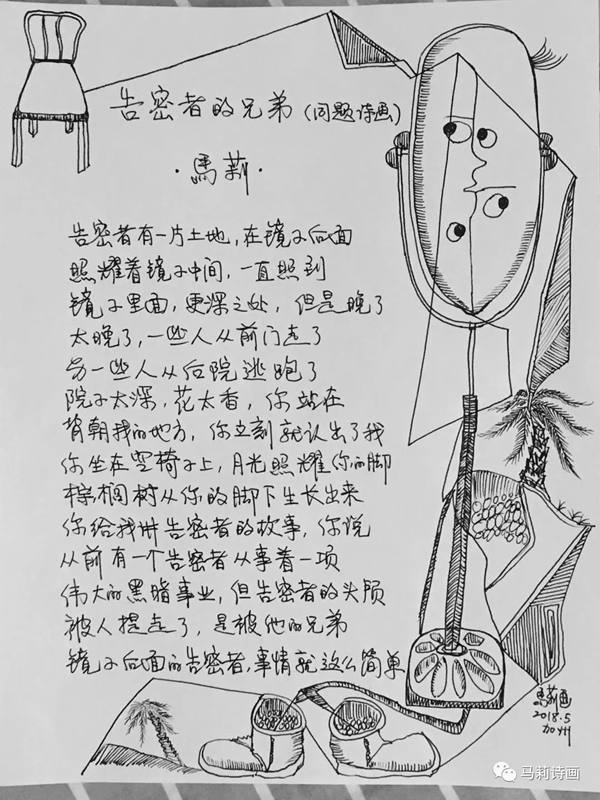 告密者的兄弟(同题诗画)
·馬莉·
告密者有一片土地,在镜子后面
照耀着镜子中间,一直照到
镜子里面,更深之处,但是晚了
太晚了,一些人从前门走了
另一些人从后院逃跑了
院子太深,花太香,你站在
背朝我的地方,你立刻就认出了我
你坐在空椅子上,月光照耀你的脚
棕榈树从你的脚下生长出来
你给我讲告密者的故事,你说
从前有一个告密者从事着一项
伟大的黑暗事业,但告密者的头颅
被人提走了,是被他的兄弟
镜子后面的告密者,事情就这么简单
馬莉画
2018.5
加州
马莉诗画